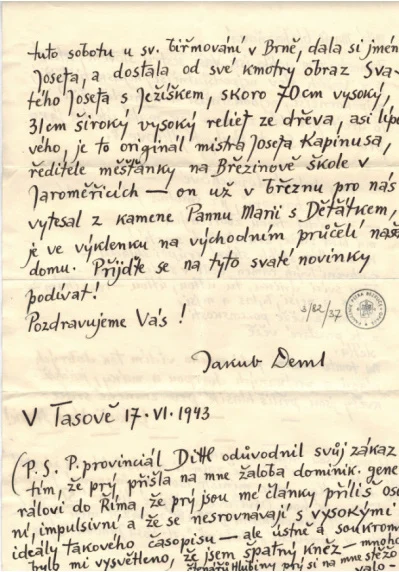 tuto sobotu u sv. biřmování v Brně, dala si jmén
Josefa, a dostala od své kmotry obraz Sva-
tého Josefa s Ježíškem, skoro 70cm vysoký,
31cm široký vysoký relief ze dřeva, asi lípo
vého, je to originál mistra Josefa Kapinusa,
ředitele měšťánky na Březinově škole v
Jaroměřicích — on už v březnu pro nás
vytesal z kamene Pannu Marii s Děťátkem,
je ve výklenku na východním průčelí naš
domu. Přijďte se na tyto svaté novinky
podívat!
Pozdravujeme Vás!
3/82/37
Jakub Deml
V Tasově 17. VI. 1943
(P. S. P. provinciál Dittl odůvodnil svůj zákaz
tím, že prý přišla na mne žaloba dominik. gene
rálovi do Říma, že prý jsou mé články příliš oso
ní, impulsivní a že se nesrovnávají s vysokými
ideály takového časopisu — ale ústně a soukrom
bylo mi vysvětleno, že jsem špatný kněz — mnoho
čtenářů Hlubiny prý si na mne stěžo
valo —